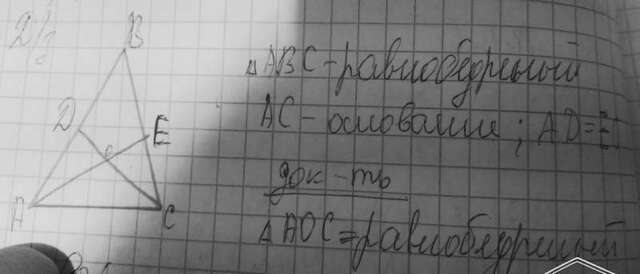 2)
B
△ABC-равнобедренный
D
E
AC-основание; AD=E
O
док-ть
A
C
△AOC=равнобедренный